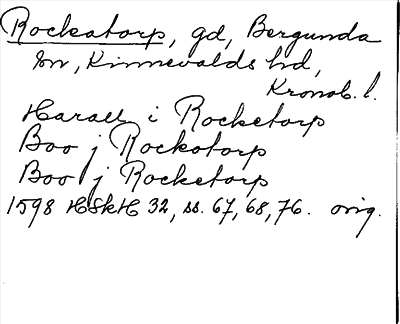 Rockatorp, gd, Bergunda
sn, Kinnevalds hd,
Kronob. l.
Harall i Rocketorp
Boo j Rockotorp
Boo j Rocketorp
1598 HSkH 32, ss. 67, 68, 76. orig.